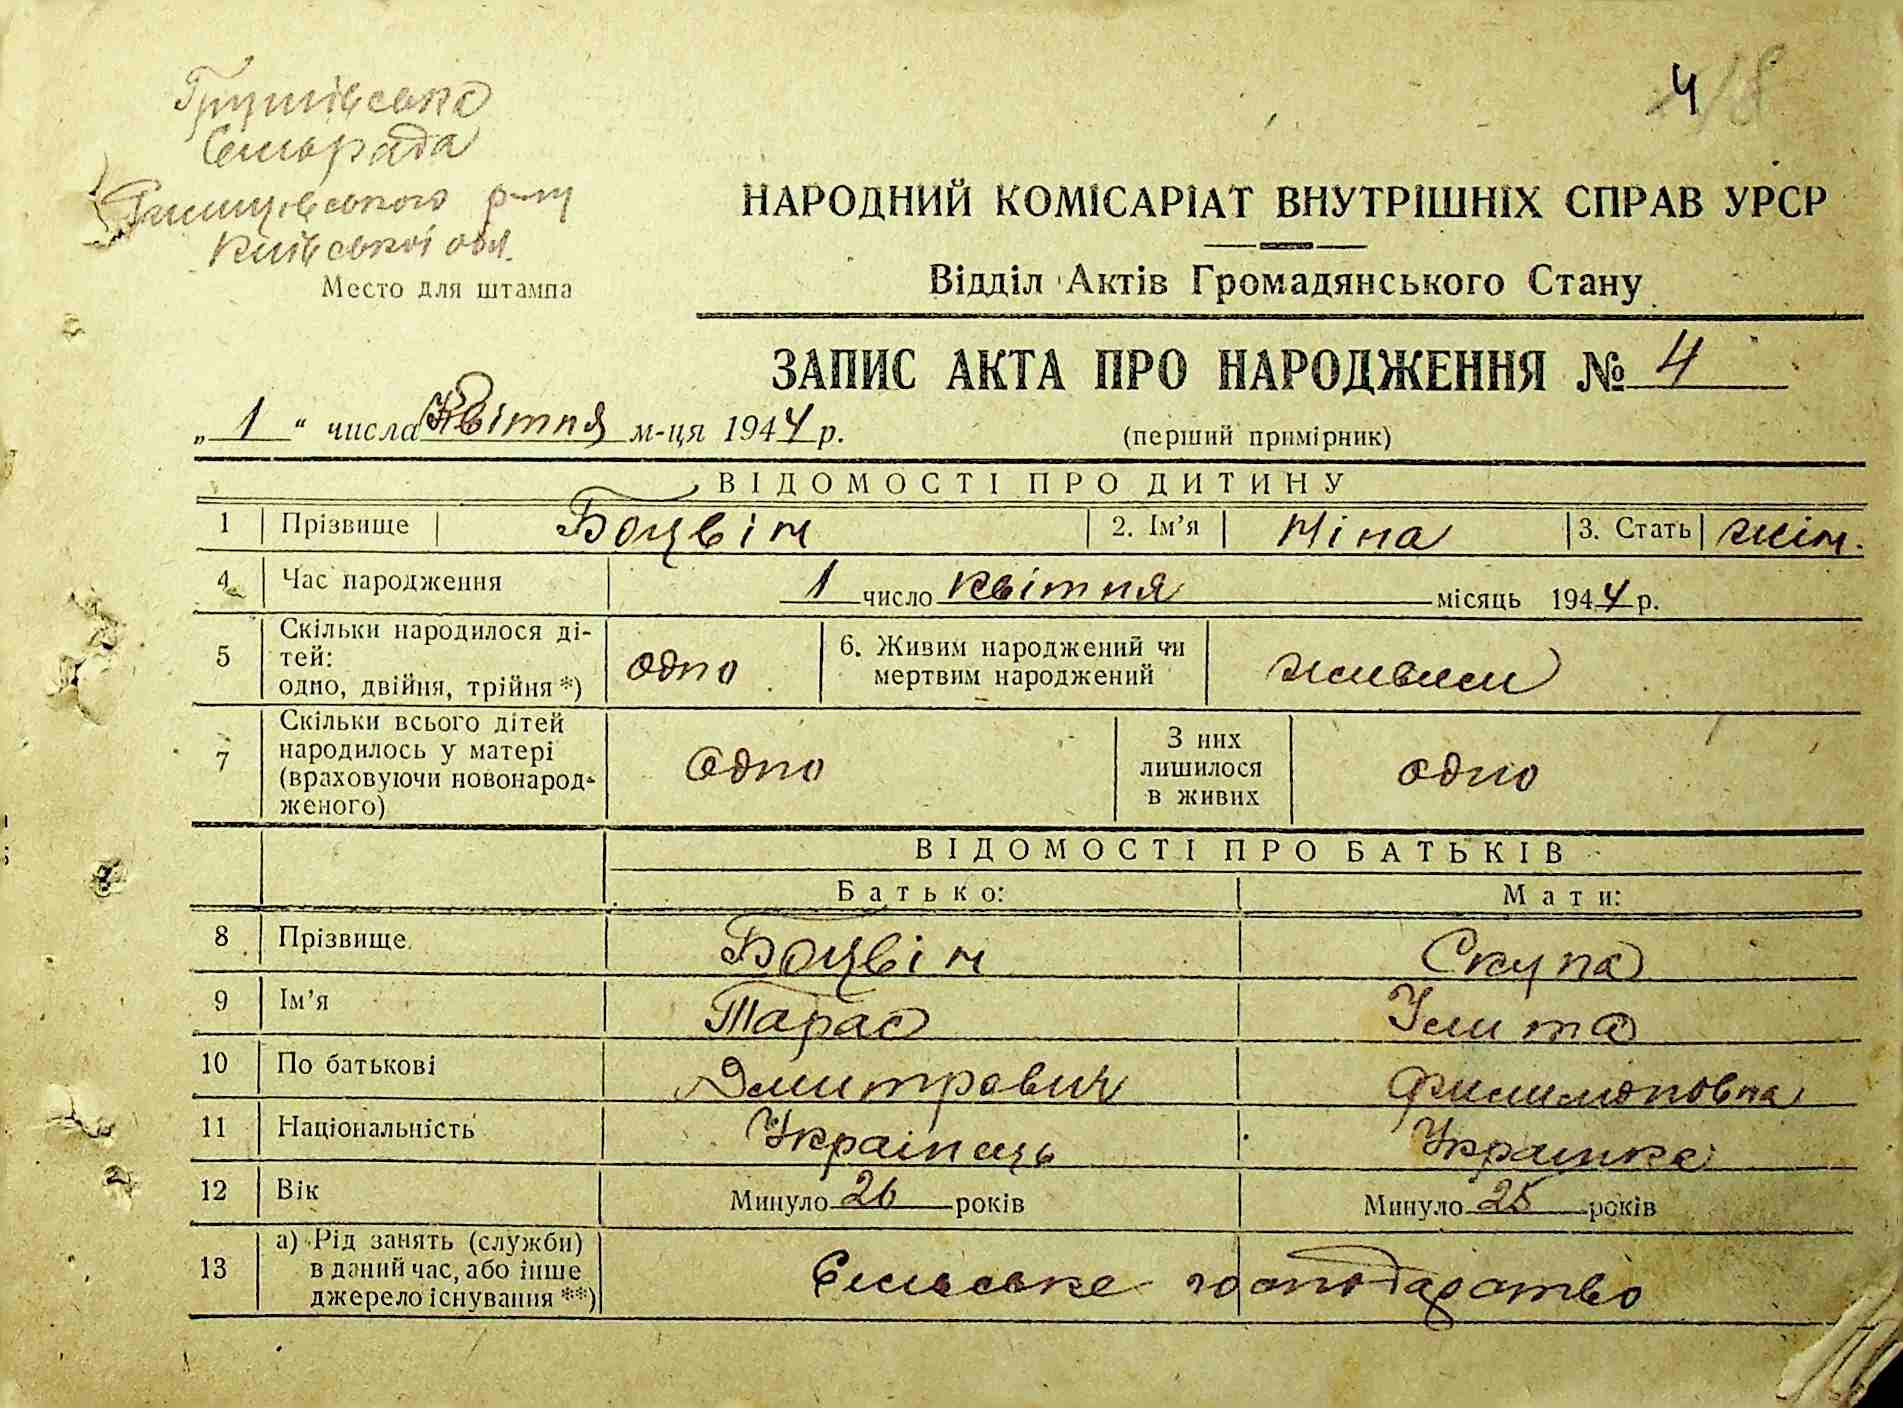 Грушівська
Сельрада
р-ну
Київської обл.
Место для штампа
4
18
НАРОДНИЙ КОМІСАРІАТ ВНУТРІШНІХ СПРАВ УРСР
Відділ Актів Громадянського Стану
ЗАПИС АКТА ПРО НАРОДЖЕННЯ № 4
„1“ числа Квітня м-ця 1944 р. (перший примірник)
ВІДОМОСТІ ПРО ДИТИНУ
1 Прізвище Боцвін 2. Ім’я Ніна 3. Стать жін.
4 Час народження 1 число Квітня місяць 1944 р.
5 Скільки народилося ді-
тей:
одно, двійня, трійня *) одно 6. Живим народжений чи
мертвим народжений живим
7 Скільки всього дітей
народилось у матері
(враховуючи новонарод-
женого) Одно З них
лишилося
в живих одно
ВІДОМОСТІ ПРО БАТЬКІВ
Батько: Мати:
8 Прізвище Боцвін Скупа
9 Ім’я Тарас Улита
10 По батькові Дмитрович Филимоновна
11 Національність Українець Українка
12 Вік Минуло 26 років Минуло 25 років
13 а) Рід занять (служби)
в даний час, або інше
джерело існування **) Сельське господарство